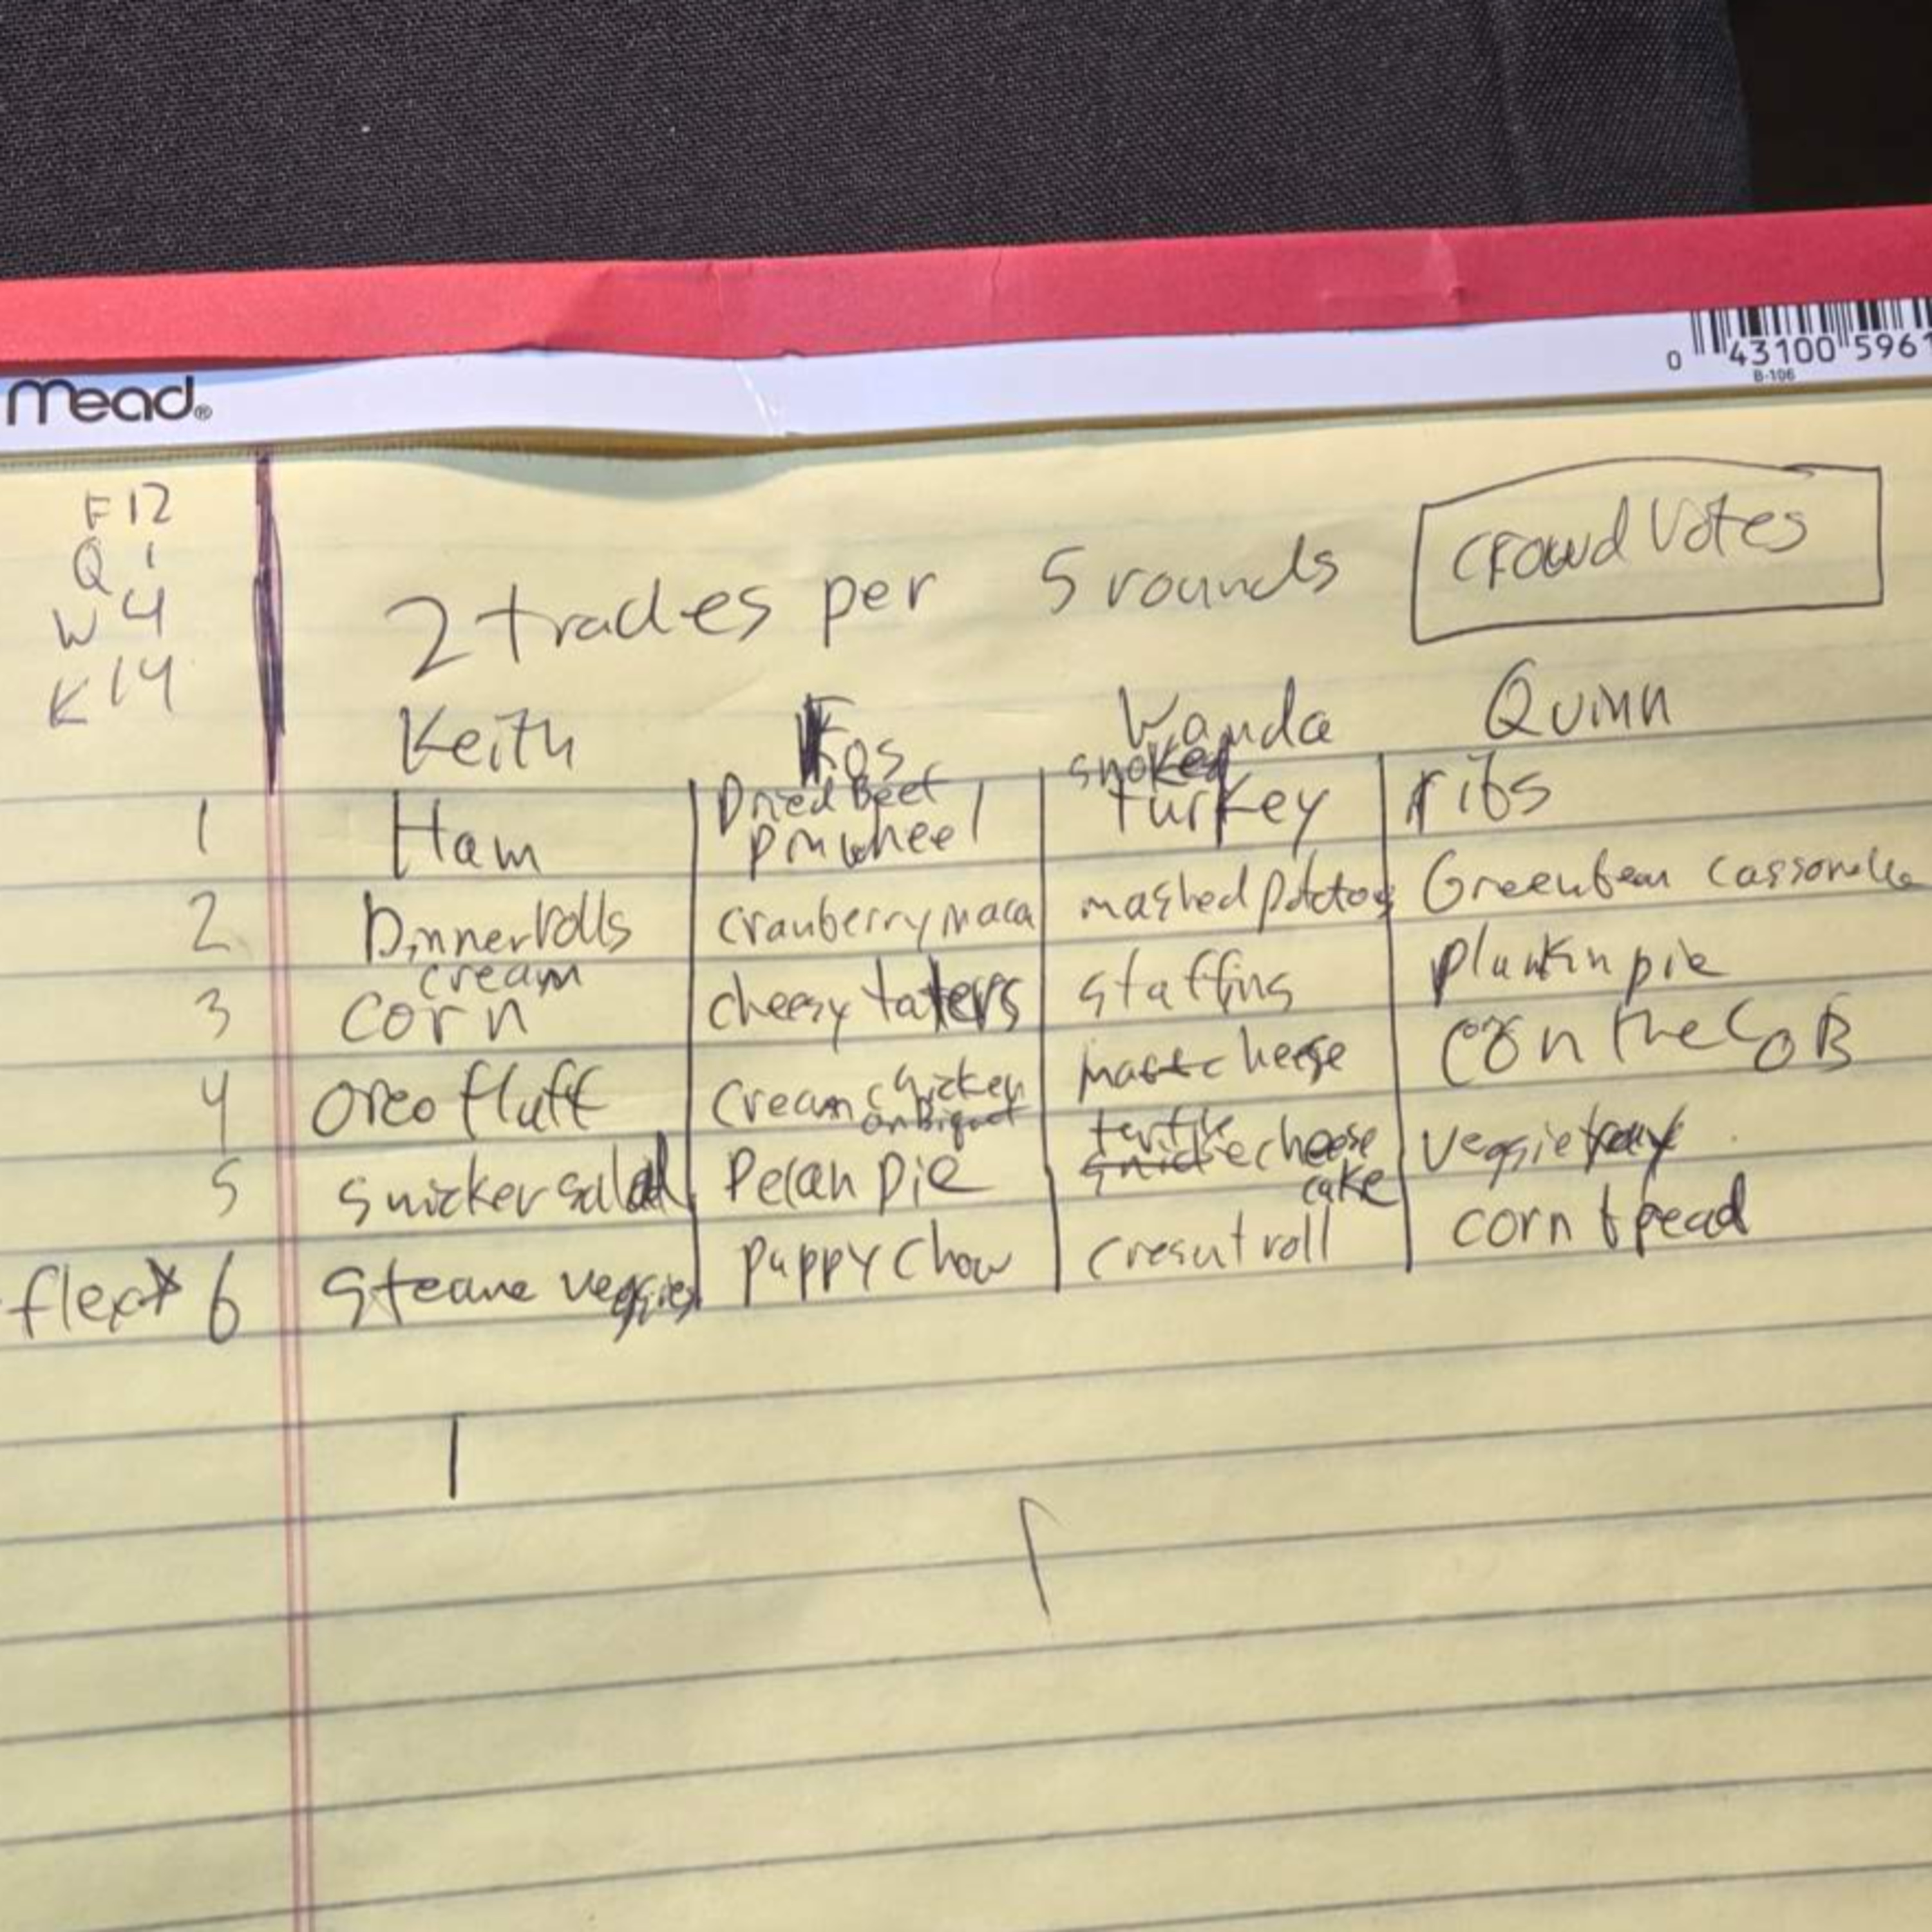 Mead®
0 43100 5961
B-106
F 12
Q 1
W 4
K 14
2 trades per 5 rounds
crowd Votes
Keith Fos Wanda Quinn
1 Ham Dried Beef pinwheel smoked turkey ribs
2 Dinner rolls cranberry maca mashed potatos Greenbean
3 cream corn cheesy taters staffing pie
4 Oreo fluff cream chicken cheese corn the COB
5 snicker salad Pecan pie turtle cheese cake veggie tray
flex* 6 steame veggies puppy chow cresut roll corn bread